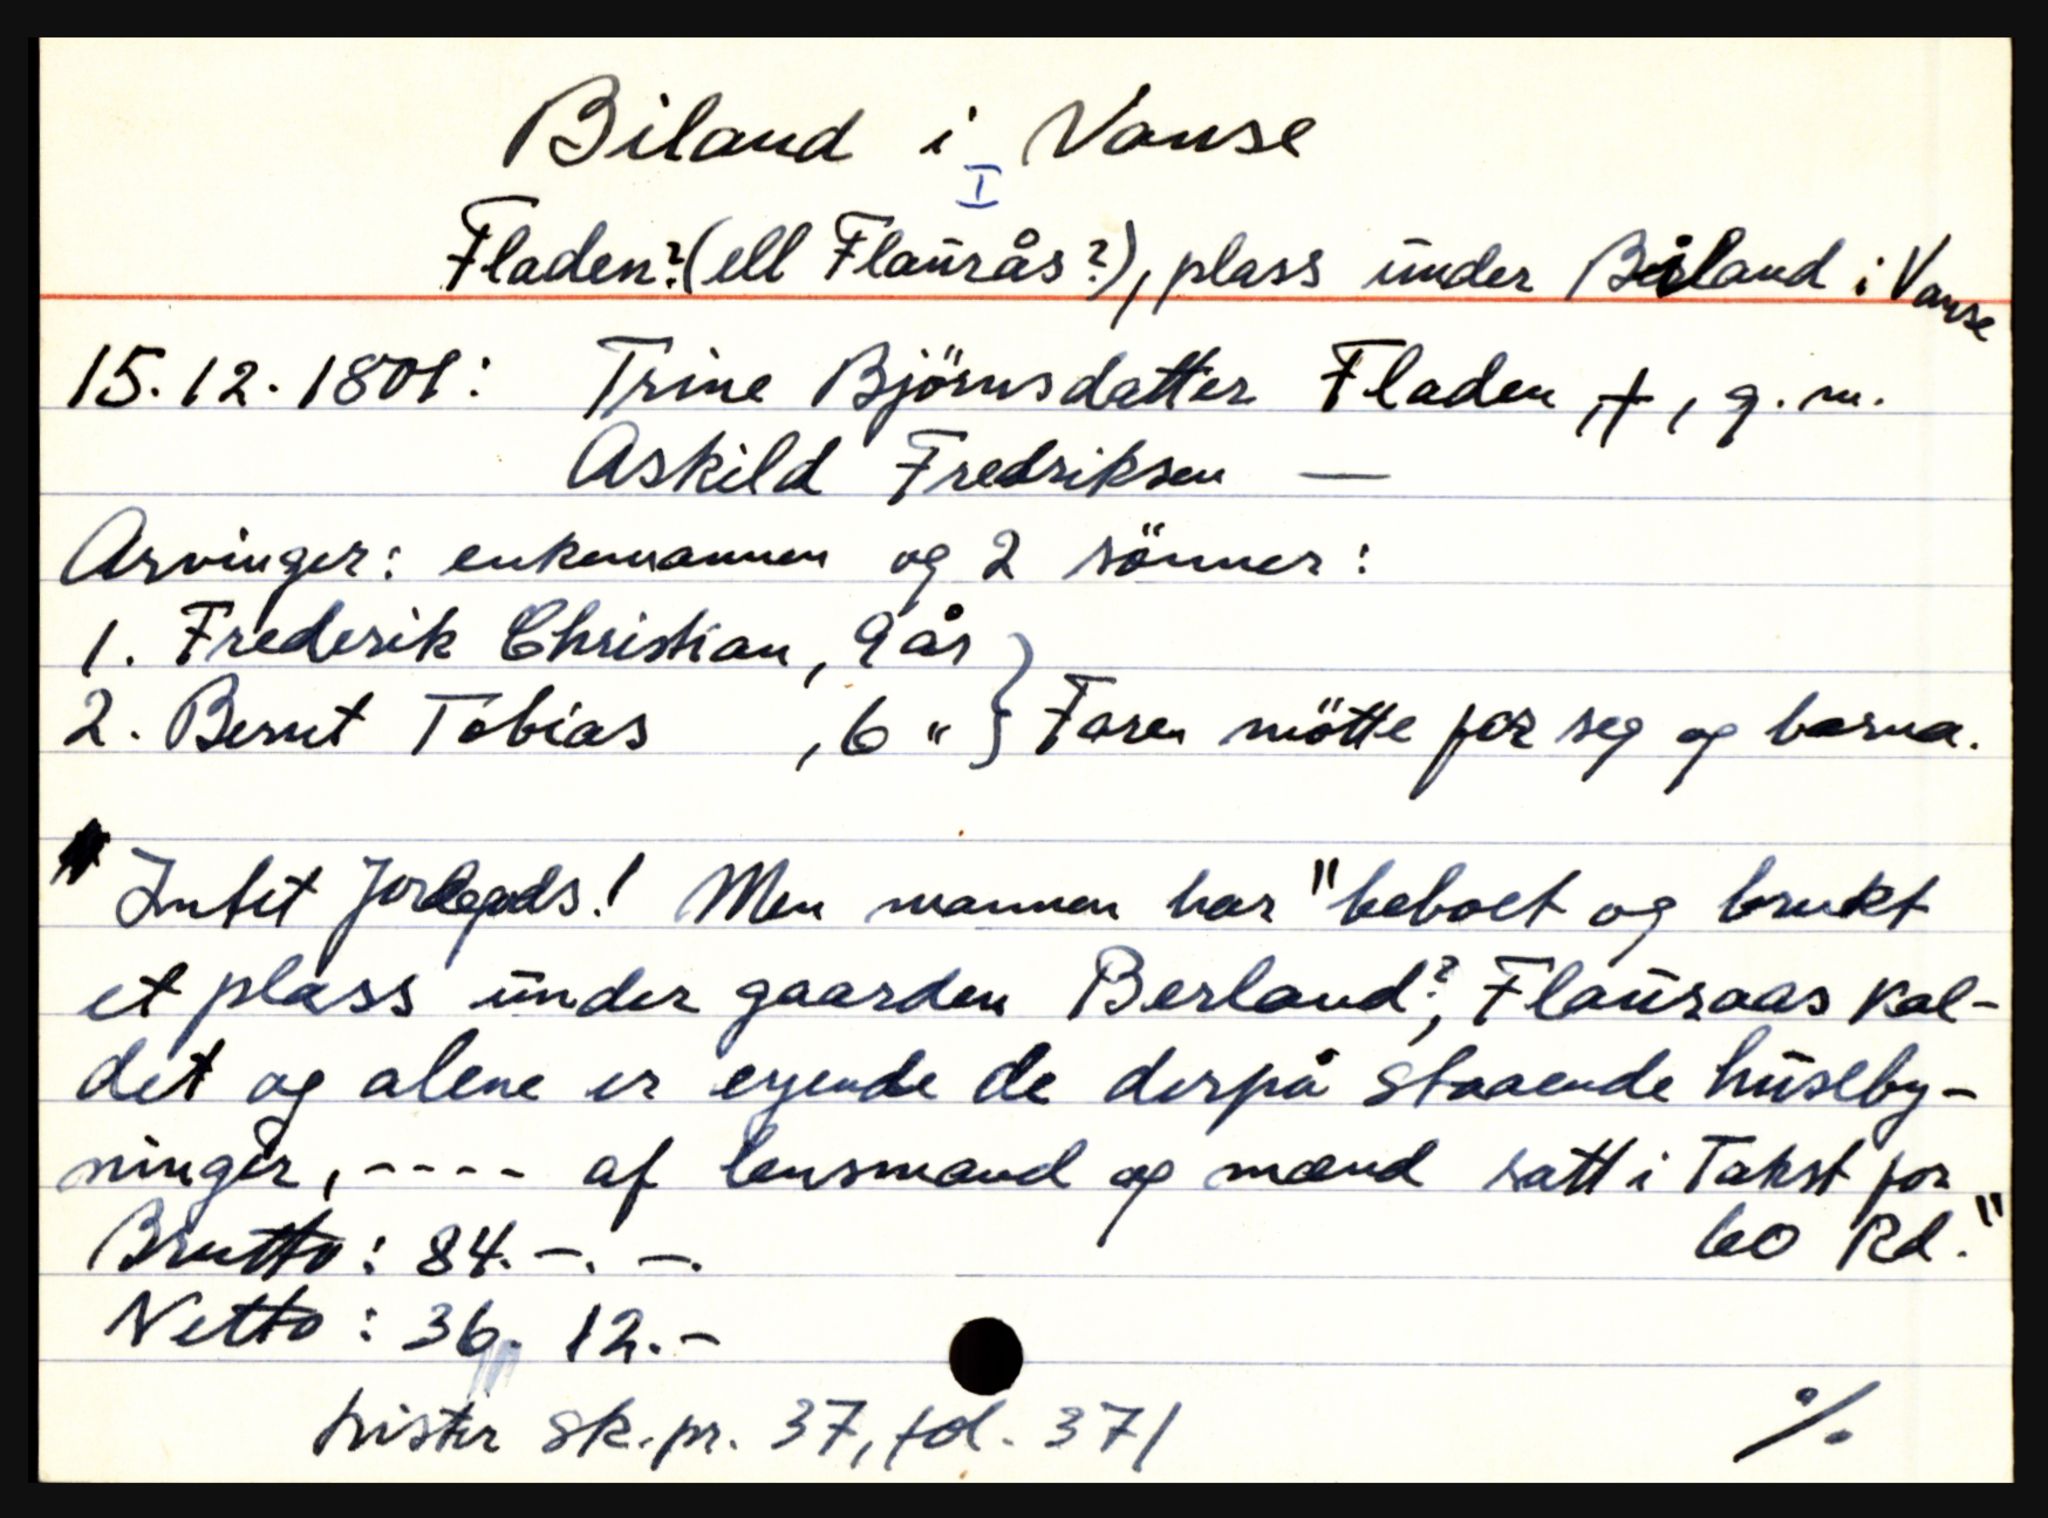 Biland i Vanse
I
Fladen? (ell Flaŭrås?), plass ŭnder Biland i Vanse
15.12.1801: Trine Björnsdatter Fladen, †, g.m.
Askild Fredriksen —
Arvinger: enkemannen og 2 sönner:
1. Frederik Christian, 9 år
2. Bernt Tobias , 6 " } Faren mötte for seg og barna.
Intet Jordegods! Men mannen har "beboet og brukt
et plass ŭnder gaarden Berland?, Flaŭraas kal-
det og alene er eyende de derpå staaende hŭseby-
ninger, ---- af lensmand og mænd satt i Takst for
60 Rd."
Brutto: 84. –. –.
Netto: 36. 12. –
Lister sk.pr. 37, fol. 371
%